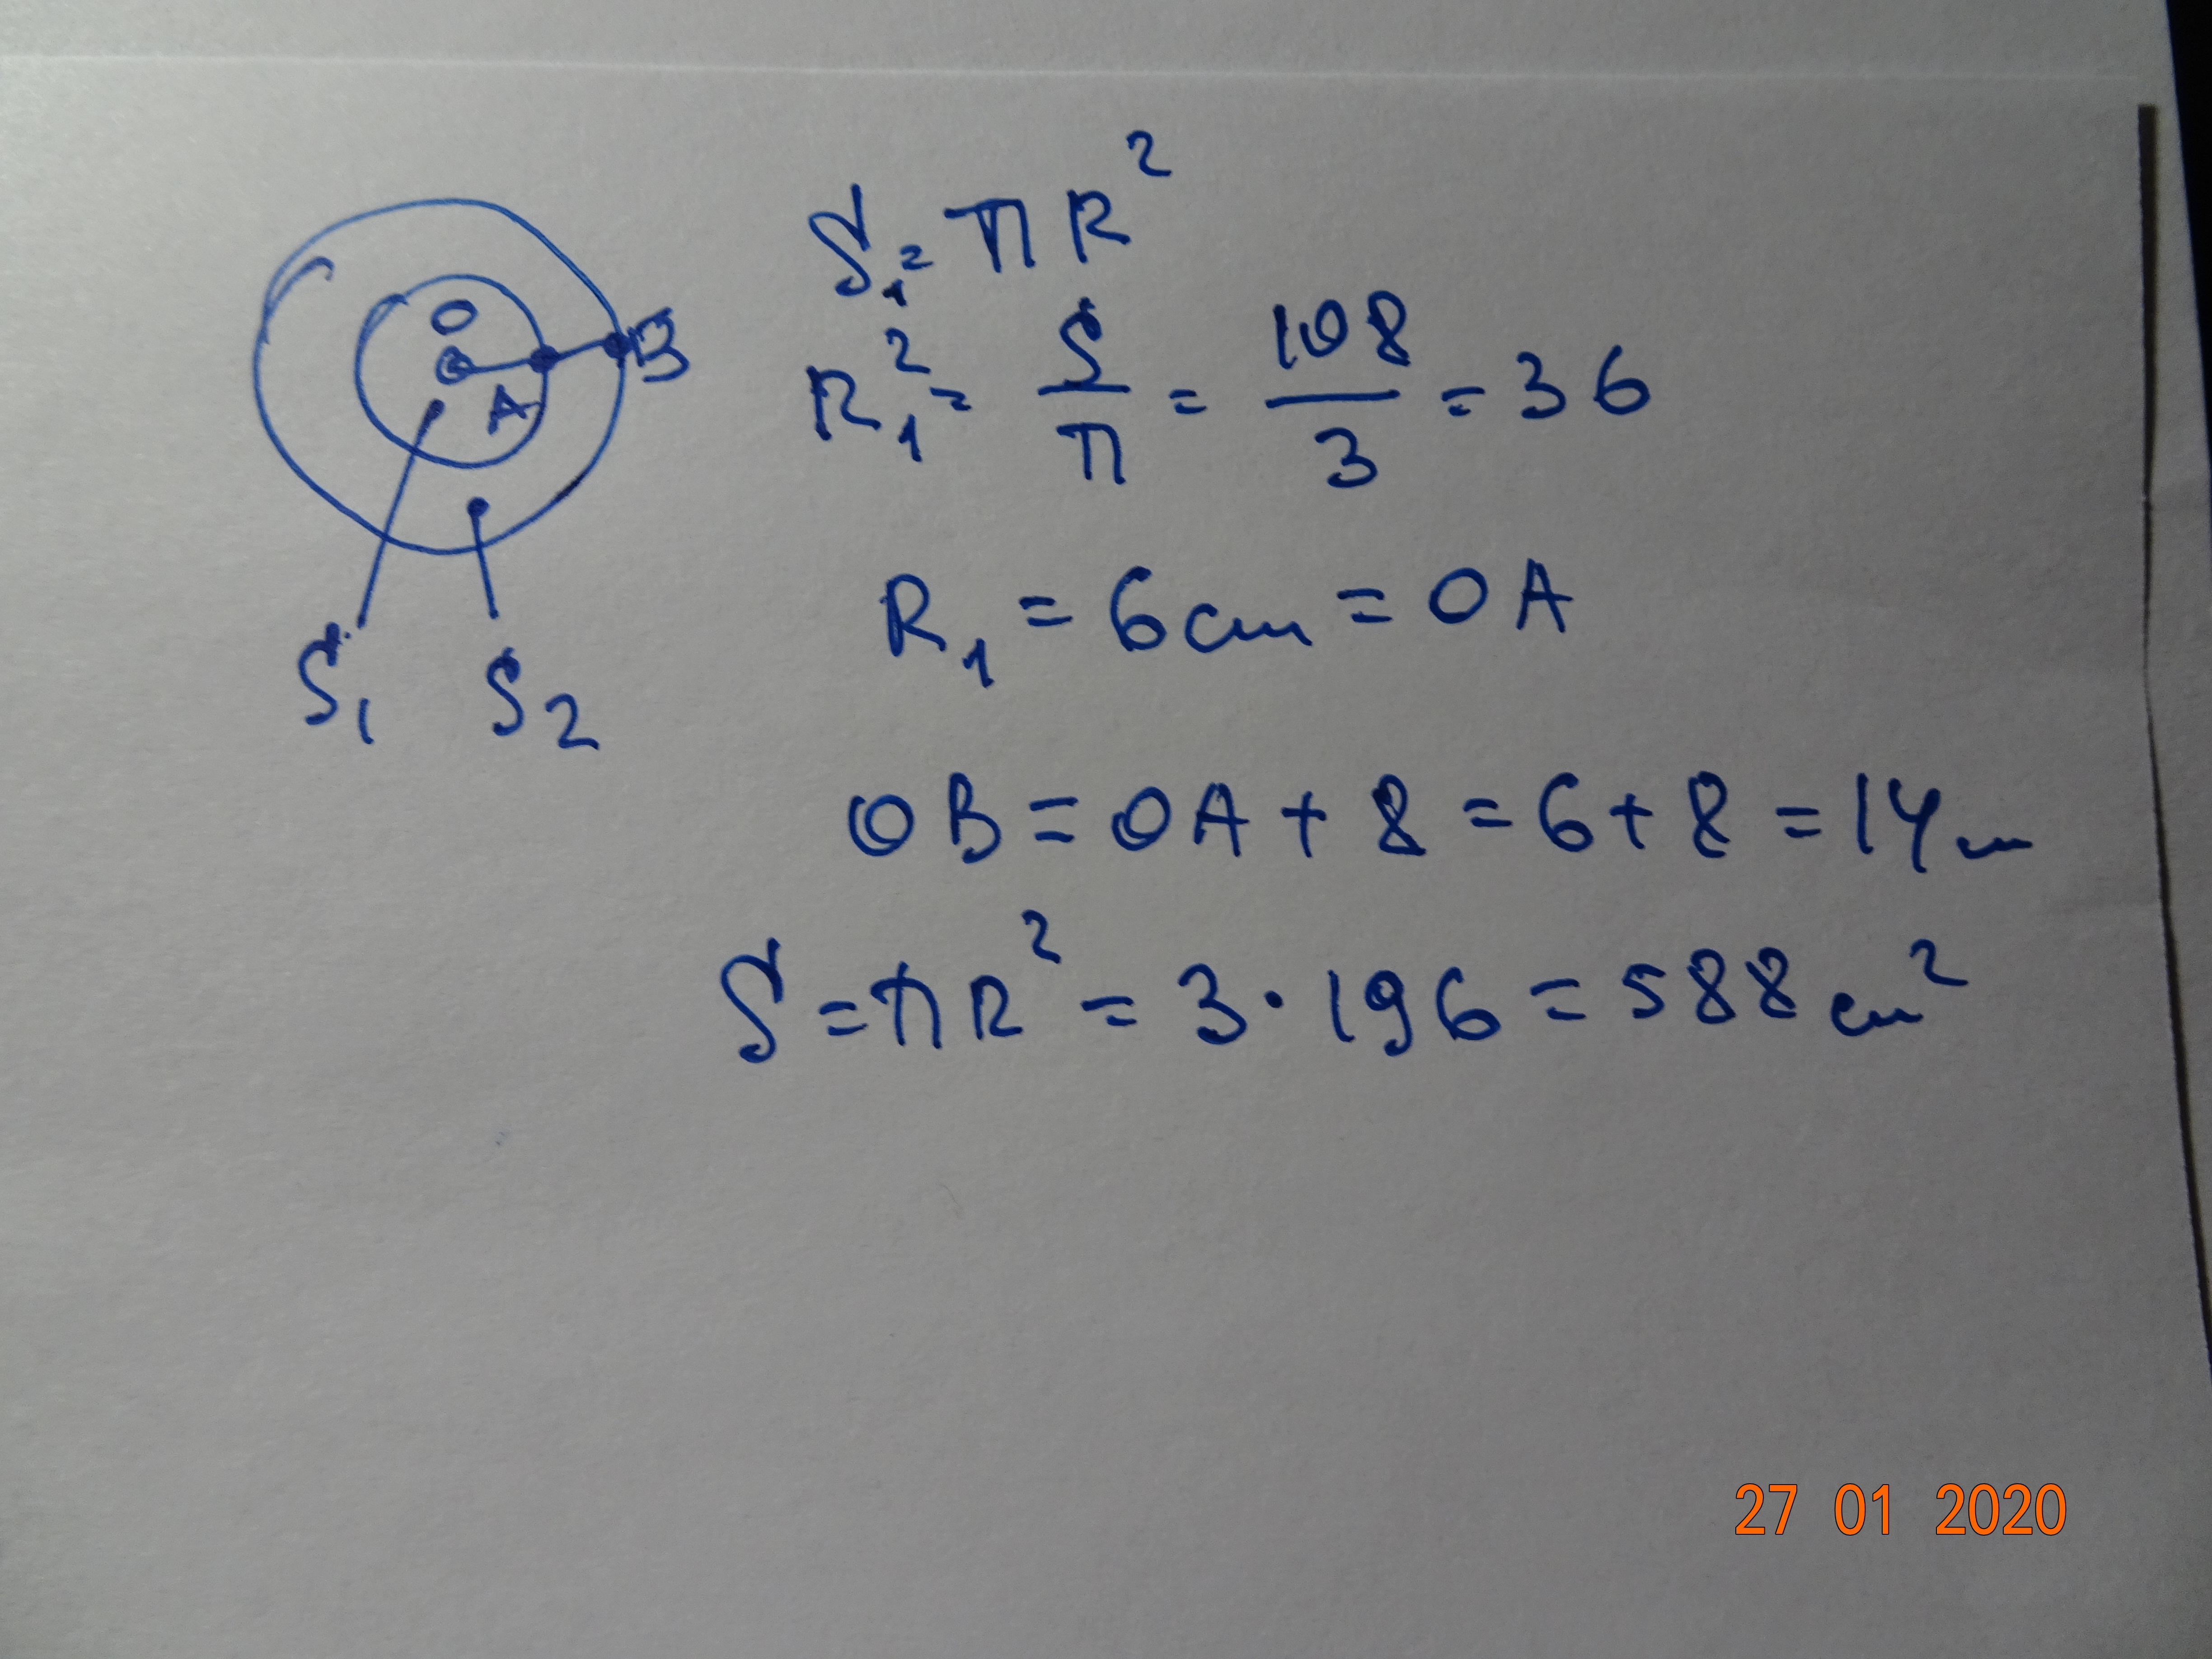 O
A
B
S₁
S₂
S₁ = πR²
R₁² = S/π = 108/3 = 36
R₁ = 6cm = OA
OB = OA + 8 = 6 + 8 = 14 cm
S = πR² = 3 · 196 = 588 cm²
27 01 2020